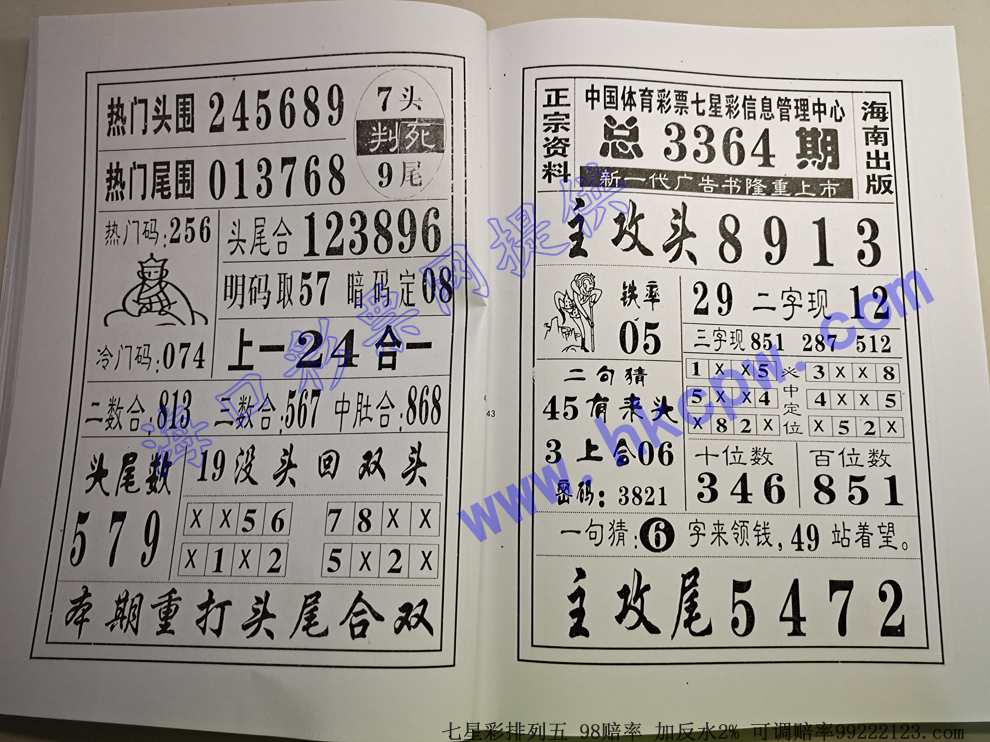 热门头围 245689
7头
判死
9尾
热门尾围 013768
热门码:256
头尾合 123896
明码取57 暗码定08
冷门码:074
上一24合一
二数合:813 三数合:567 中肚合:868
头尾数
579
19没头回双头
XX56 78XX
X1X2 5X2X
本期重打头尾合双
43
正宗资料
中国体育彩票七星彩信息管理中心
总3364期
新一代广告书隆重上市
海南出版
主攻头8913
铁率
05
29 二字现 12
三字现 851 287 512
二句猜
45有来头
3上合06
密码:3821
必中定位
1XX5 3XX8
5XX4 4XX5
X82X X52X
十位数
346
百位数
851
一句猜:6字来领钱,49站着望。
主攻尾5472
海口彩票网提供
www.hkcpw.com
七星彩排列五 98赔率 加反水2% 可调赔率99222123.com